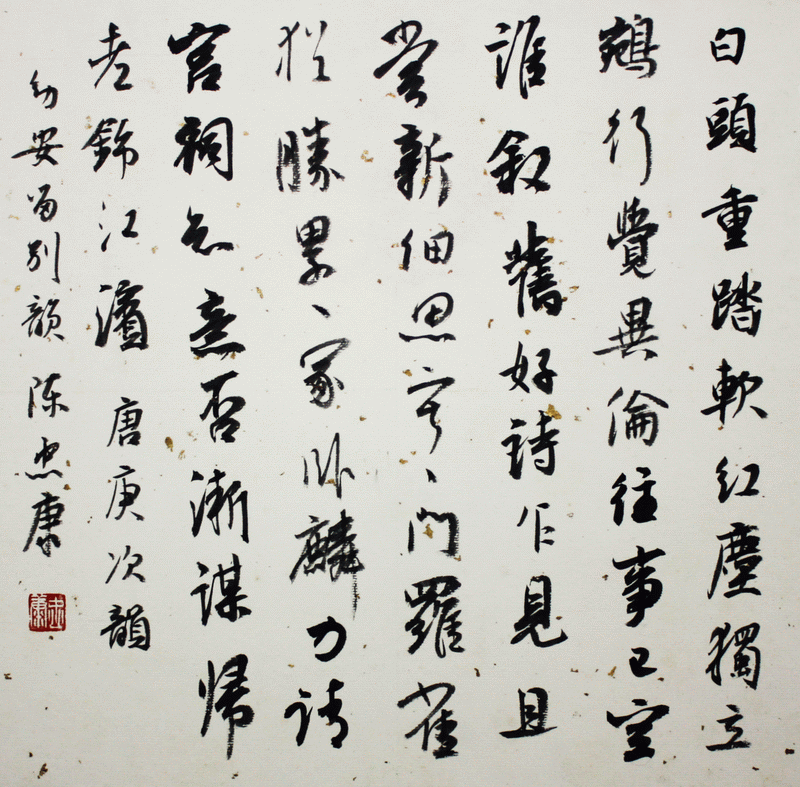 白頭重踏軟紅塵獨立
鵷行覺異倫往事已空
誰叙舊好詩乍見且
嘗新細思寂、門羅雀
猶勝累、冢卧麟力請
宫祠知意否漸謀帰
老錦江濱 唐庚次韻
幼安留别韻 陈忠康
忠康